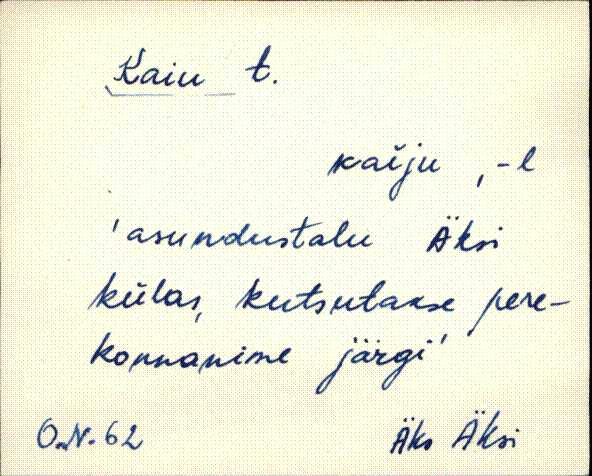 Kaiu t.
kaiju, -l
'asundustalu Äksi
külas, kutsutakse pere-
konnanime järgi'
O.N. 62 Äks Äksi